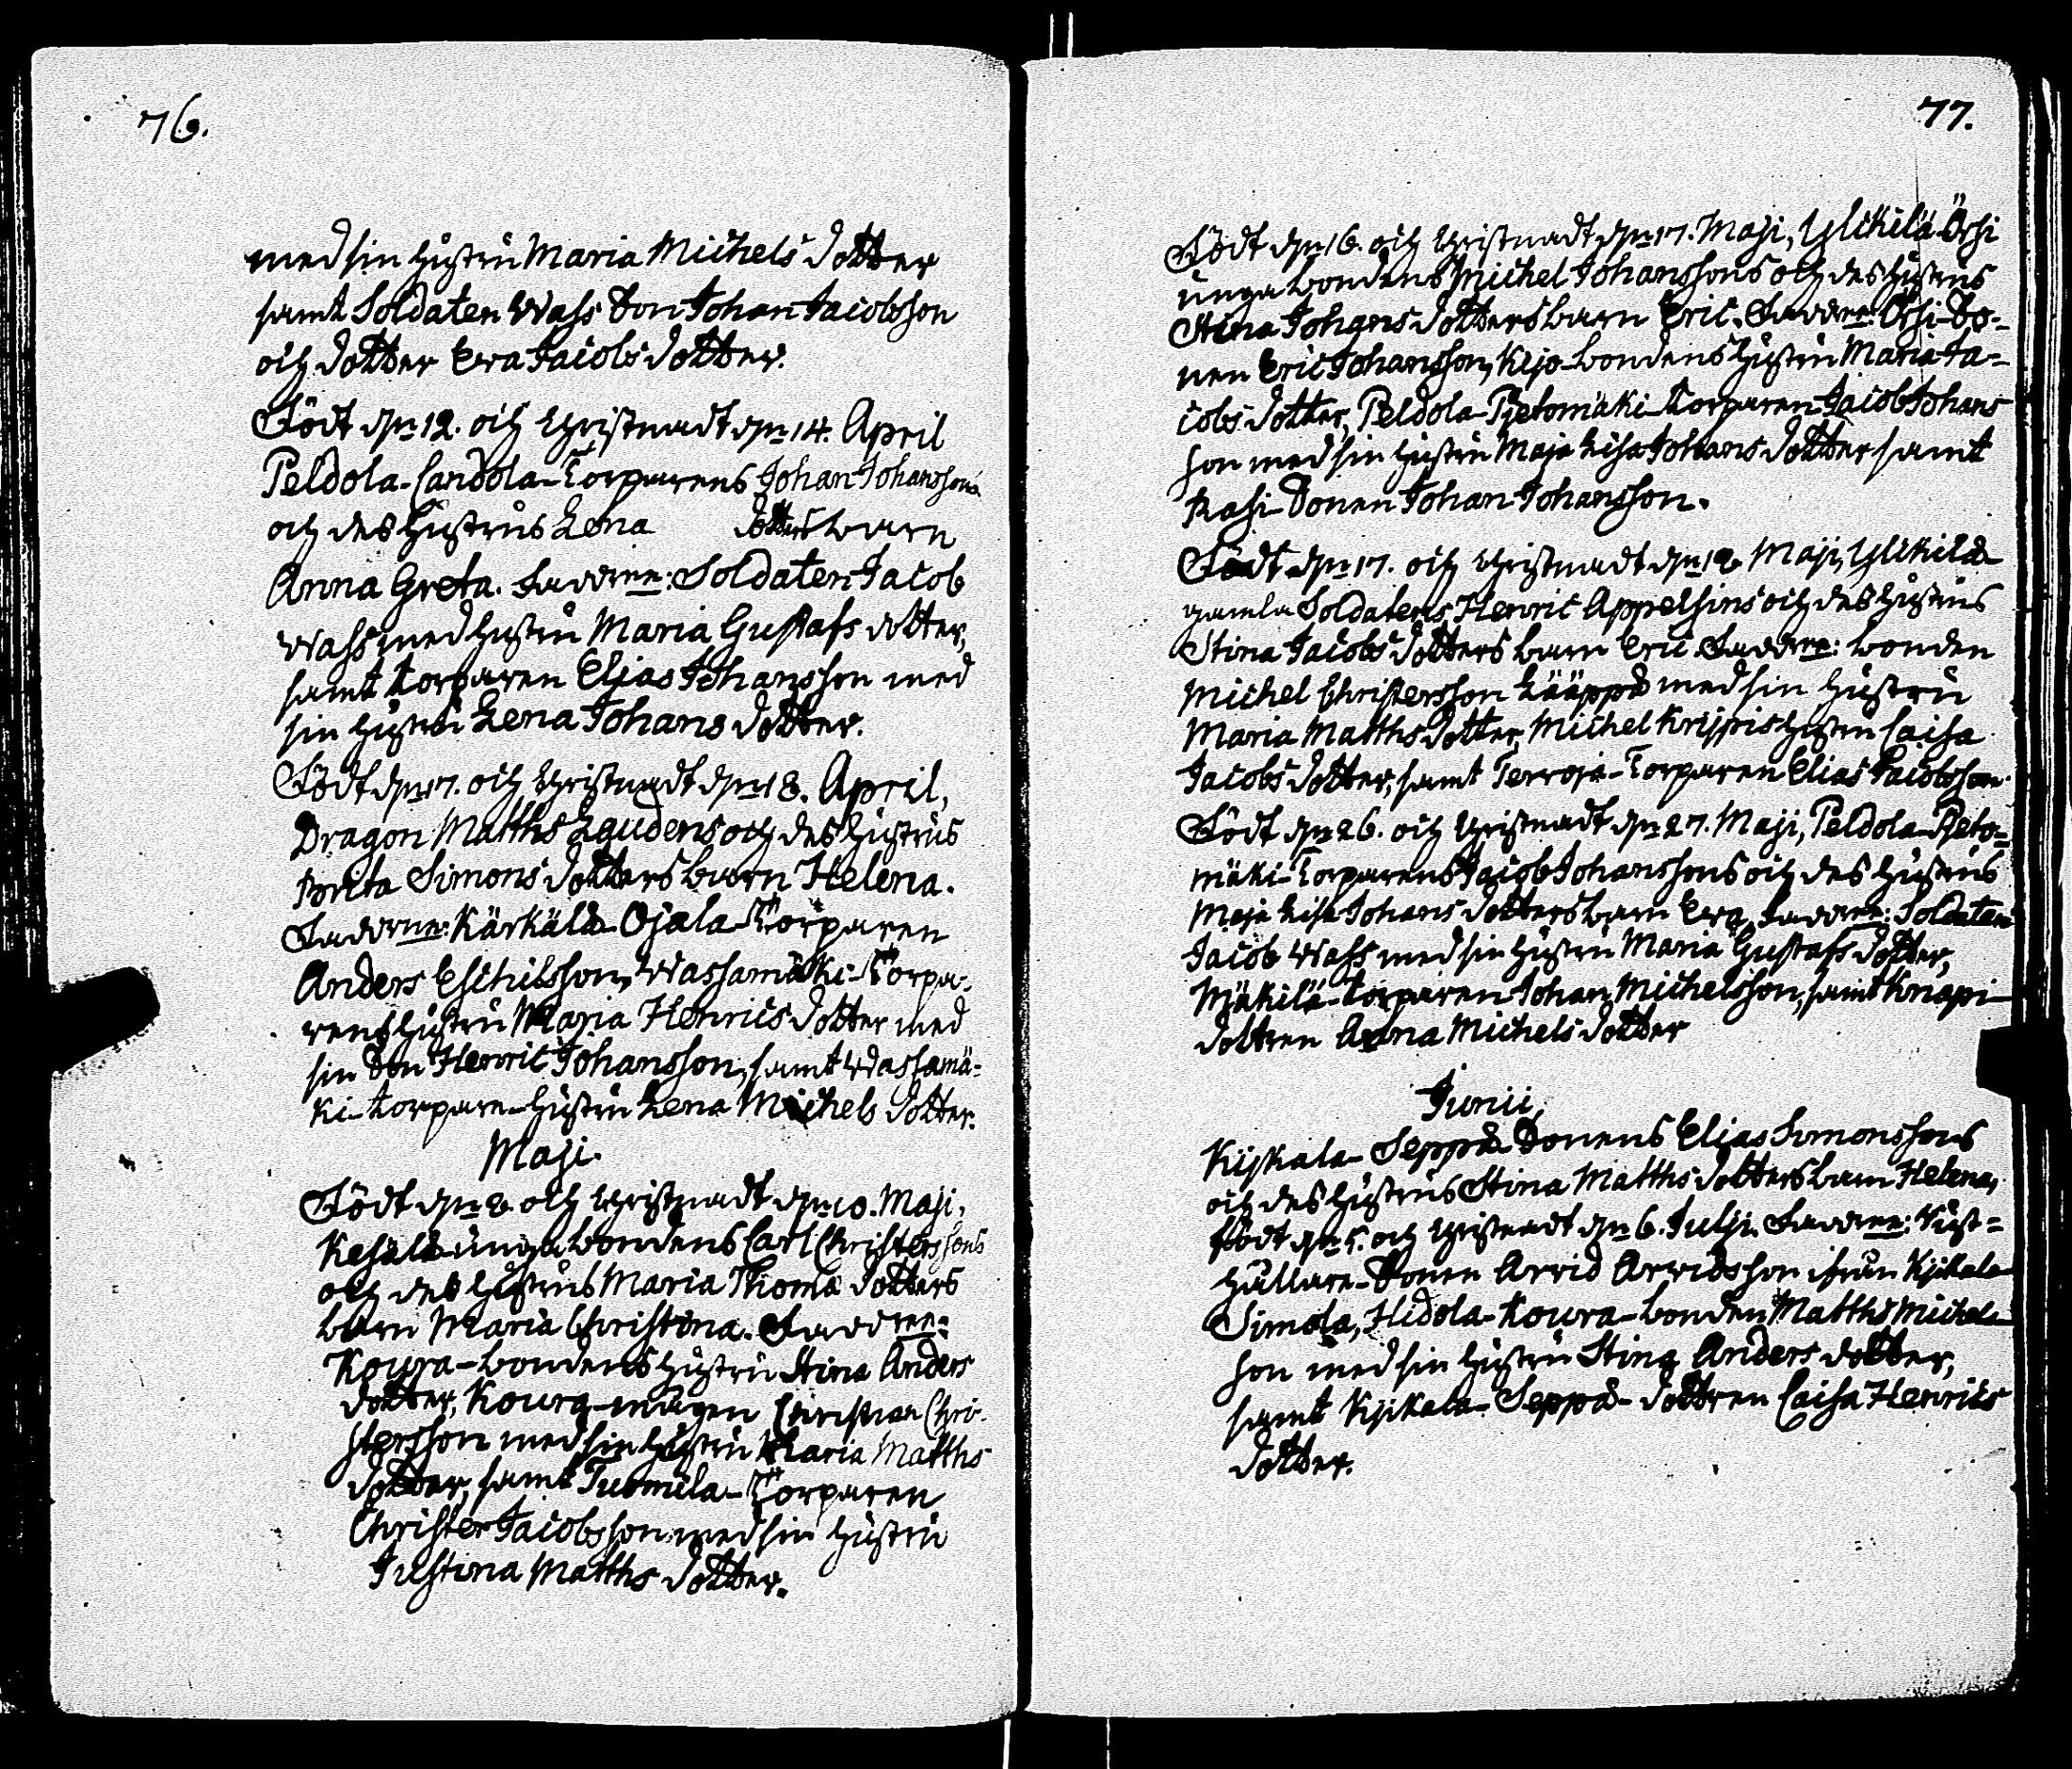 76.
med sin hustru Maria Michels dotter
samt Soldaten Wass Son Johan Jacobsson
och dotter Eva Jacobs dotter.
Född d. 12. och Christnadt d. 14. April
Peldola-Candola-Torparens Johan Johanssons
och des hustrus Lena dotters barn
Anna Greta. Faddrne: Soldaten Jacob
Wass med hustru Maria Gustafs dotter,
samt torparen Elias Johansson med
sin hustru Lena Johans dotter.
Född d. 17. och Christnadt d. 18. April,
Dragon Matths Laudens och des hustrus
Brita Simons dotters barn Helena.
Faddrne: Kärkälä-Ojala-Torparen
Anders Eschilsson, Wassamäki-Torpa-
rens hustru Maria Henrics dotter med
sin Son Henric Johansson, samt Wassamä-
ki-torpare-hustru Lena Michels dotter.
Maji.
Född d. 8. och Christnadt d. 10. Maji,
Kesälä unga bondens Carl Christerssons
och des hustrus Maria Thomæ dotters
barn Maria Christina. Faddrne:
Koura-bondens hustru Stina Anders
dotter, Koura-mågen Christian Chri-
stersson med sin hustru Maria Matths
dotter, samt Tuomila-Torparen
Christer Jacobsson med sin hustru
Justina Matths dotter.
77.
Född d. 16. och Christnadt d. 17. Maji, Ylikilä-Örsi
unga bondens Michel Johanssons och des hustrus
Stina Johans dotters barn Eric. Faddrne: Örsi-So-
nen Eric Johansson, Kejo-bondens hustru Maria Ja-
cobs dotter, Peldola-Pjetomäki-Torparen Jacob Johans
son med sin hustru Maja Lisa Johans dotter samt
Rasi-Sonen Johan Johansson.
Född d. 17. och Christnadt d. 18. Maji, Ylikilä
gamla Soldatens Henric Appelsins och des hustrus
Stina Jacobs dotters barn Eric. Faddrne: bonden
Michel Christersson Lääppä med sin hustru
Maria Matths dotter, Michel Krijpis hustru Caisa
Jacobs dotter, samt Terroja-Torparen Elias Jacobsson.
Född d. 26. och Christnadt d. 27. Maji, Peldola-Pjeto-
mäki-Torparens Jacob Johanssons och des hustrus
Maja Lisa Johans dotters barn Eva. Faddrne: Soldaten
Jacob Wass med sin hustru Maria Gustafs dotter,
Mäkilä-torparen Johan Michelsson, samt Knapi-
dottren Anna Michels dotter
Junii,
Kijkala-Seppä-Sonens Elias Simonssons
och des hustrus Stina Matths dotters barn Helena,
född d. 5. och Christnadt d. 6. Julji. Faddrne: Kust-
hållare-Sonen Arvid Arvidsson ifrån Kijkala
Simola, Hidola-Koura-bonden Matths Michels
son med sin hustru Stina Anders dotter,
samt Kijkala-Seppä-dottren Caisa Henrics
dotter.